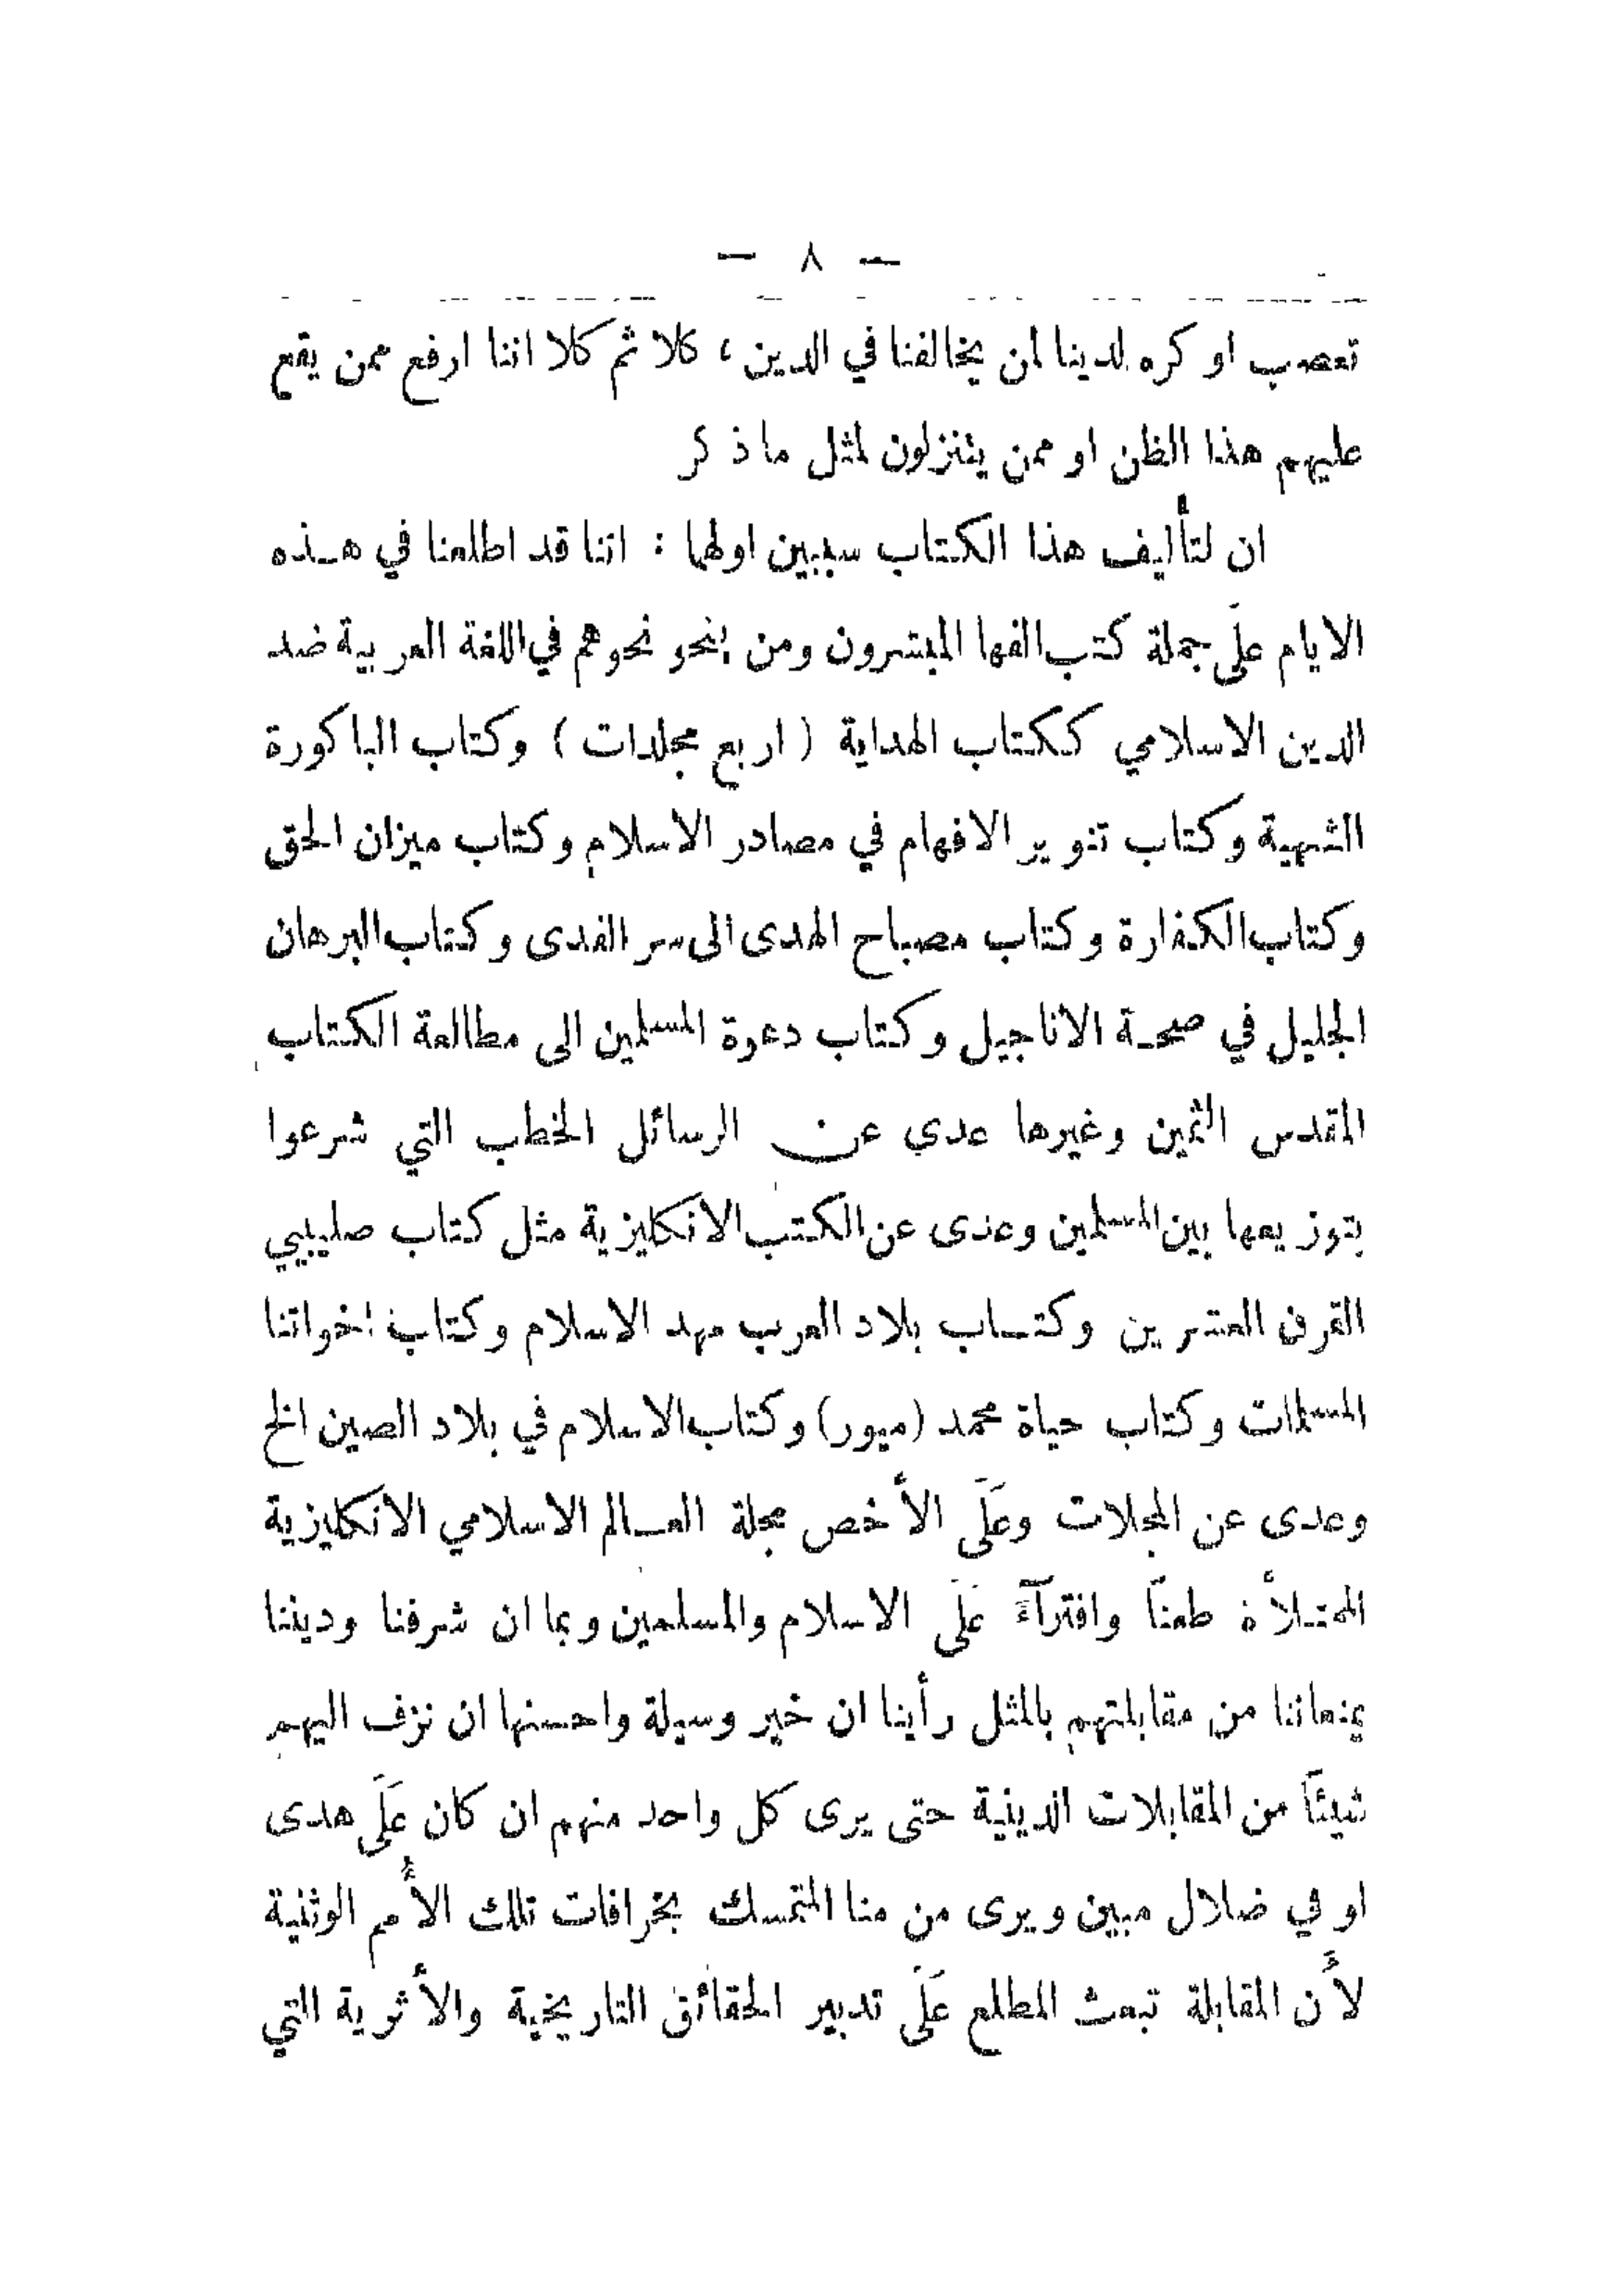 — ٨ —
تعصب او كره لدينا لمن يخالفنا في الدين، كلا ثم كلا اننا ارفع ممن يقع
عليهم هذا الظن او ممن يتنزلون لمثل ما ذكر
ان لتأليف هذا الكتاب سببين اولهما : اننا قد اطلعنا في هـذه
الايام علَى جملة كتب الفها المبشرون ومن ينحو نحوهم في اللغة العربية ضد
الدين الاسلامي ككتاب الهداية ( اربع مجلدات ) وكتاب الباكورة
الشهية وكتاب تنوير الافهام في مصادر الاسلام وكتاب ميزان الحق
وكتاب الكفارة وكتاب مصباح الهدى الى سر الفدى وكتاب البرهان
الجليل في صحـة الاناجيل وكتاب دعوة المسلمين الى مطالعة الكتاب
المقدس الثمين وغيرها عدى عن الرسائل الخطب التي شرعوا
بتوزيعها بين المسلمين وعدى عن الكتب الانكليزية مثل كتاب صليبيي
القرن العشرين وكتـاب بلاد العرب مهد الاسلام وكتاب اخواتنا
المسلمات وكتاب حياة محمد (ميور) وكتاب الاسلام في بلاد الصين الخ
وعدى عن المجلات وعَلَى الأخص مجلة العـالم الاسلامي الانكليزية
الممتـلأة طعنًا وافترآءً عَلَى الاسلام والمسلمين وبما ان شرفنا وديننا
يمنعاننا من مقابلتهم بالمثل رأينا ان خير وسيلة واحسنها ان نزف اليهم
شيئًا من المقابلات الدينية حتى يرى كل واحد منهم ان كان عَلَى هدى
او في ضلال مبين ويرى من منا المتمسك بخرافات تلك الأُمم الوثنية
لأَن المقابلة تبعث المطلع عَلَى تدبير الحقائق التاريخية والأثرية التي